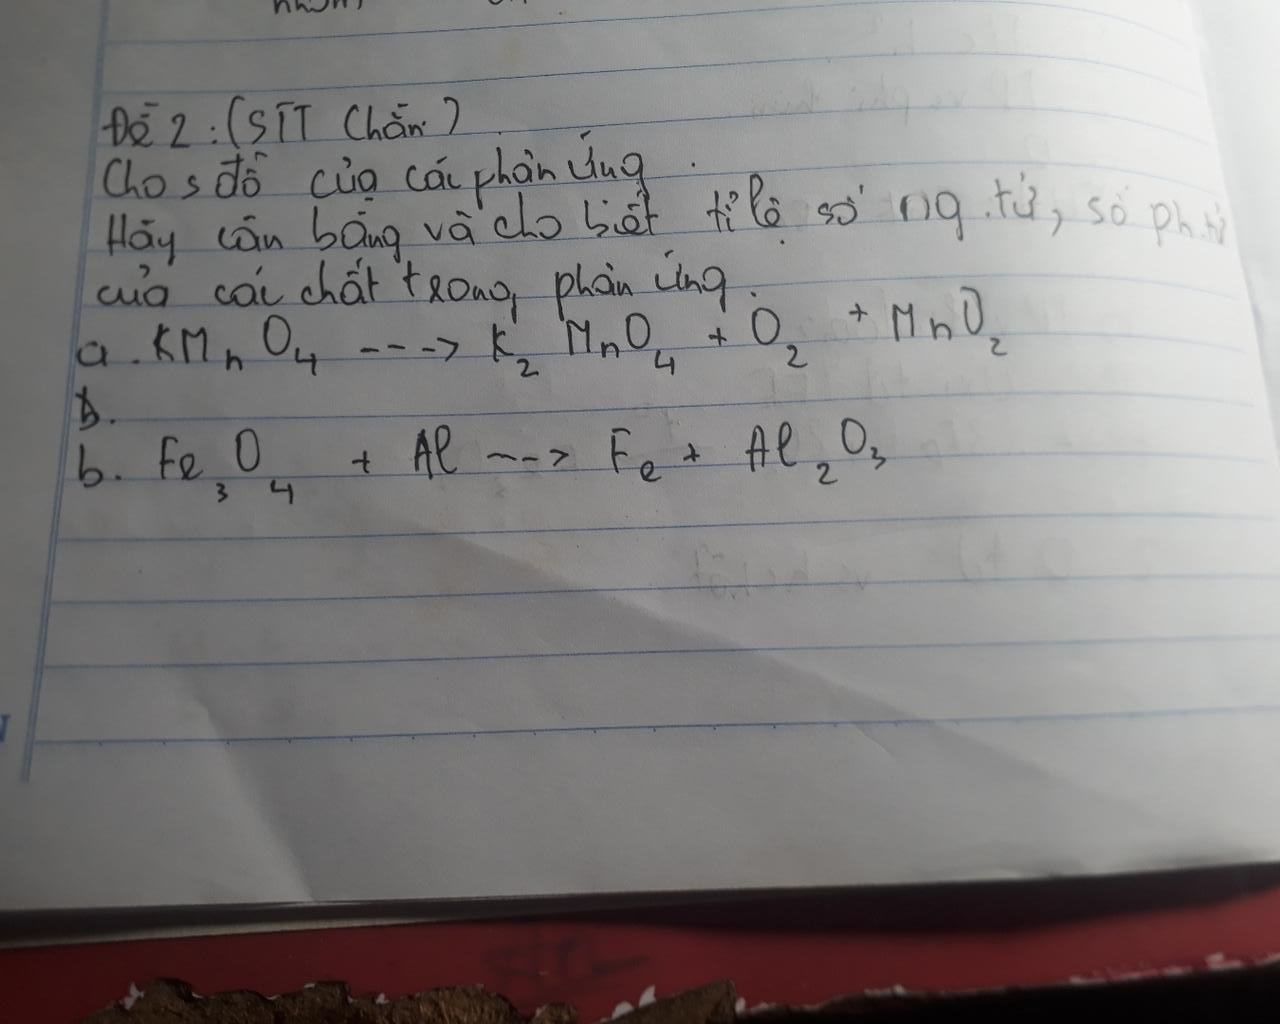 Đề 2: (STT Chẵn)
Cho s đồ của các phản ứng.
Hãy cân bằng và cho biết tỉ lệ số ng.tử, số ph.tử
của các chất trong phản ứng.
a. KMnO4 ---> K2MnO4 + O2 + MnO2
b.
b. Fe3O4 + Al ---> Fe + Al2O3